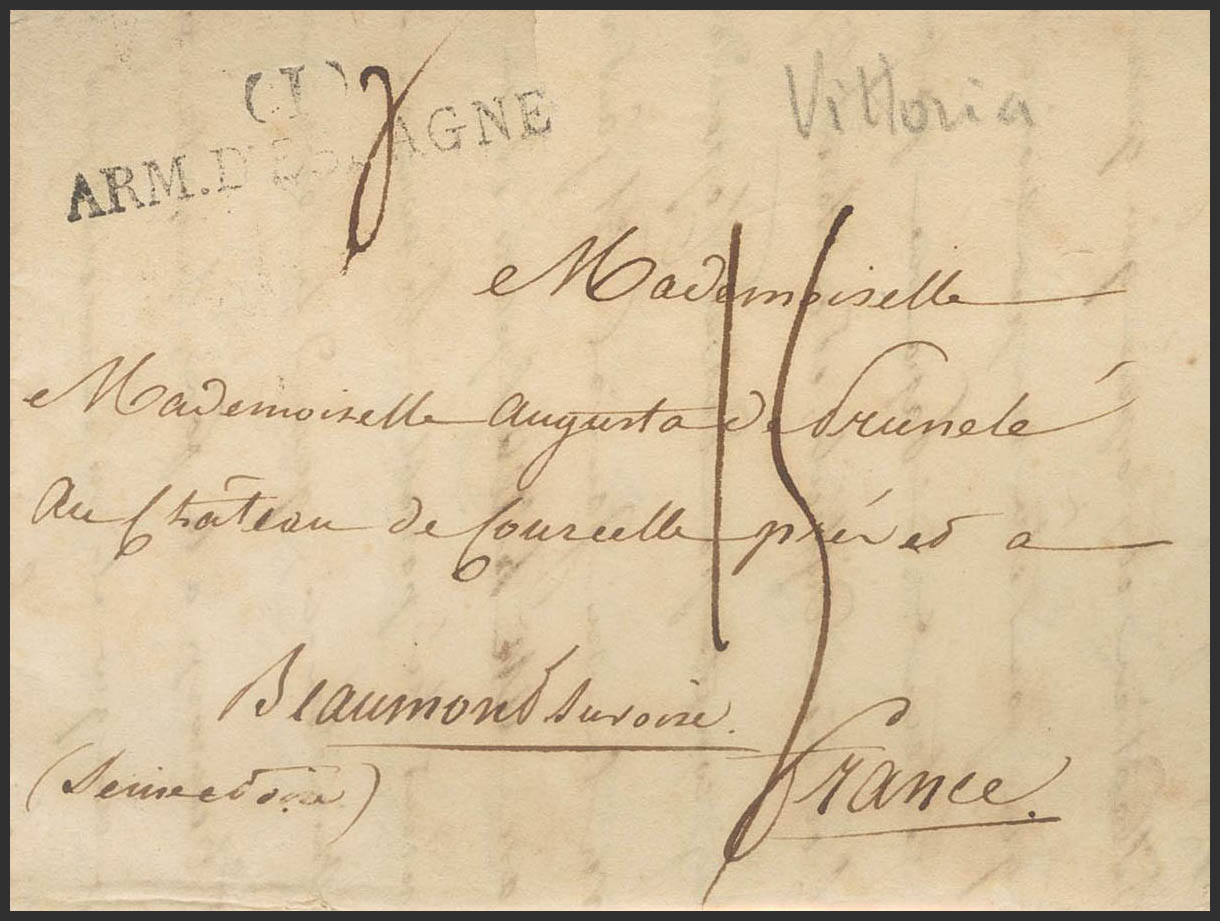 (I)
ARM. D'ESPAGNE
Vittoria
15
Mademoiselle
Mademoiselle Augusta de Prunelé
Au Château de Courcelle
Beaumont Sur oise.
(Seine et oise)
France.